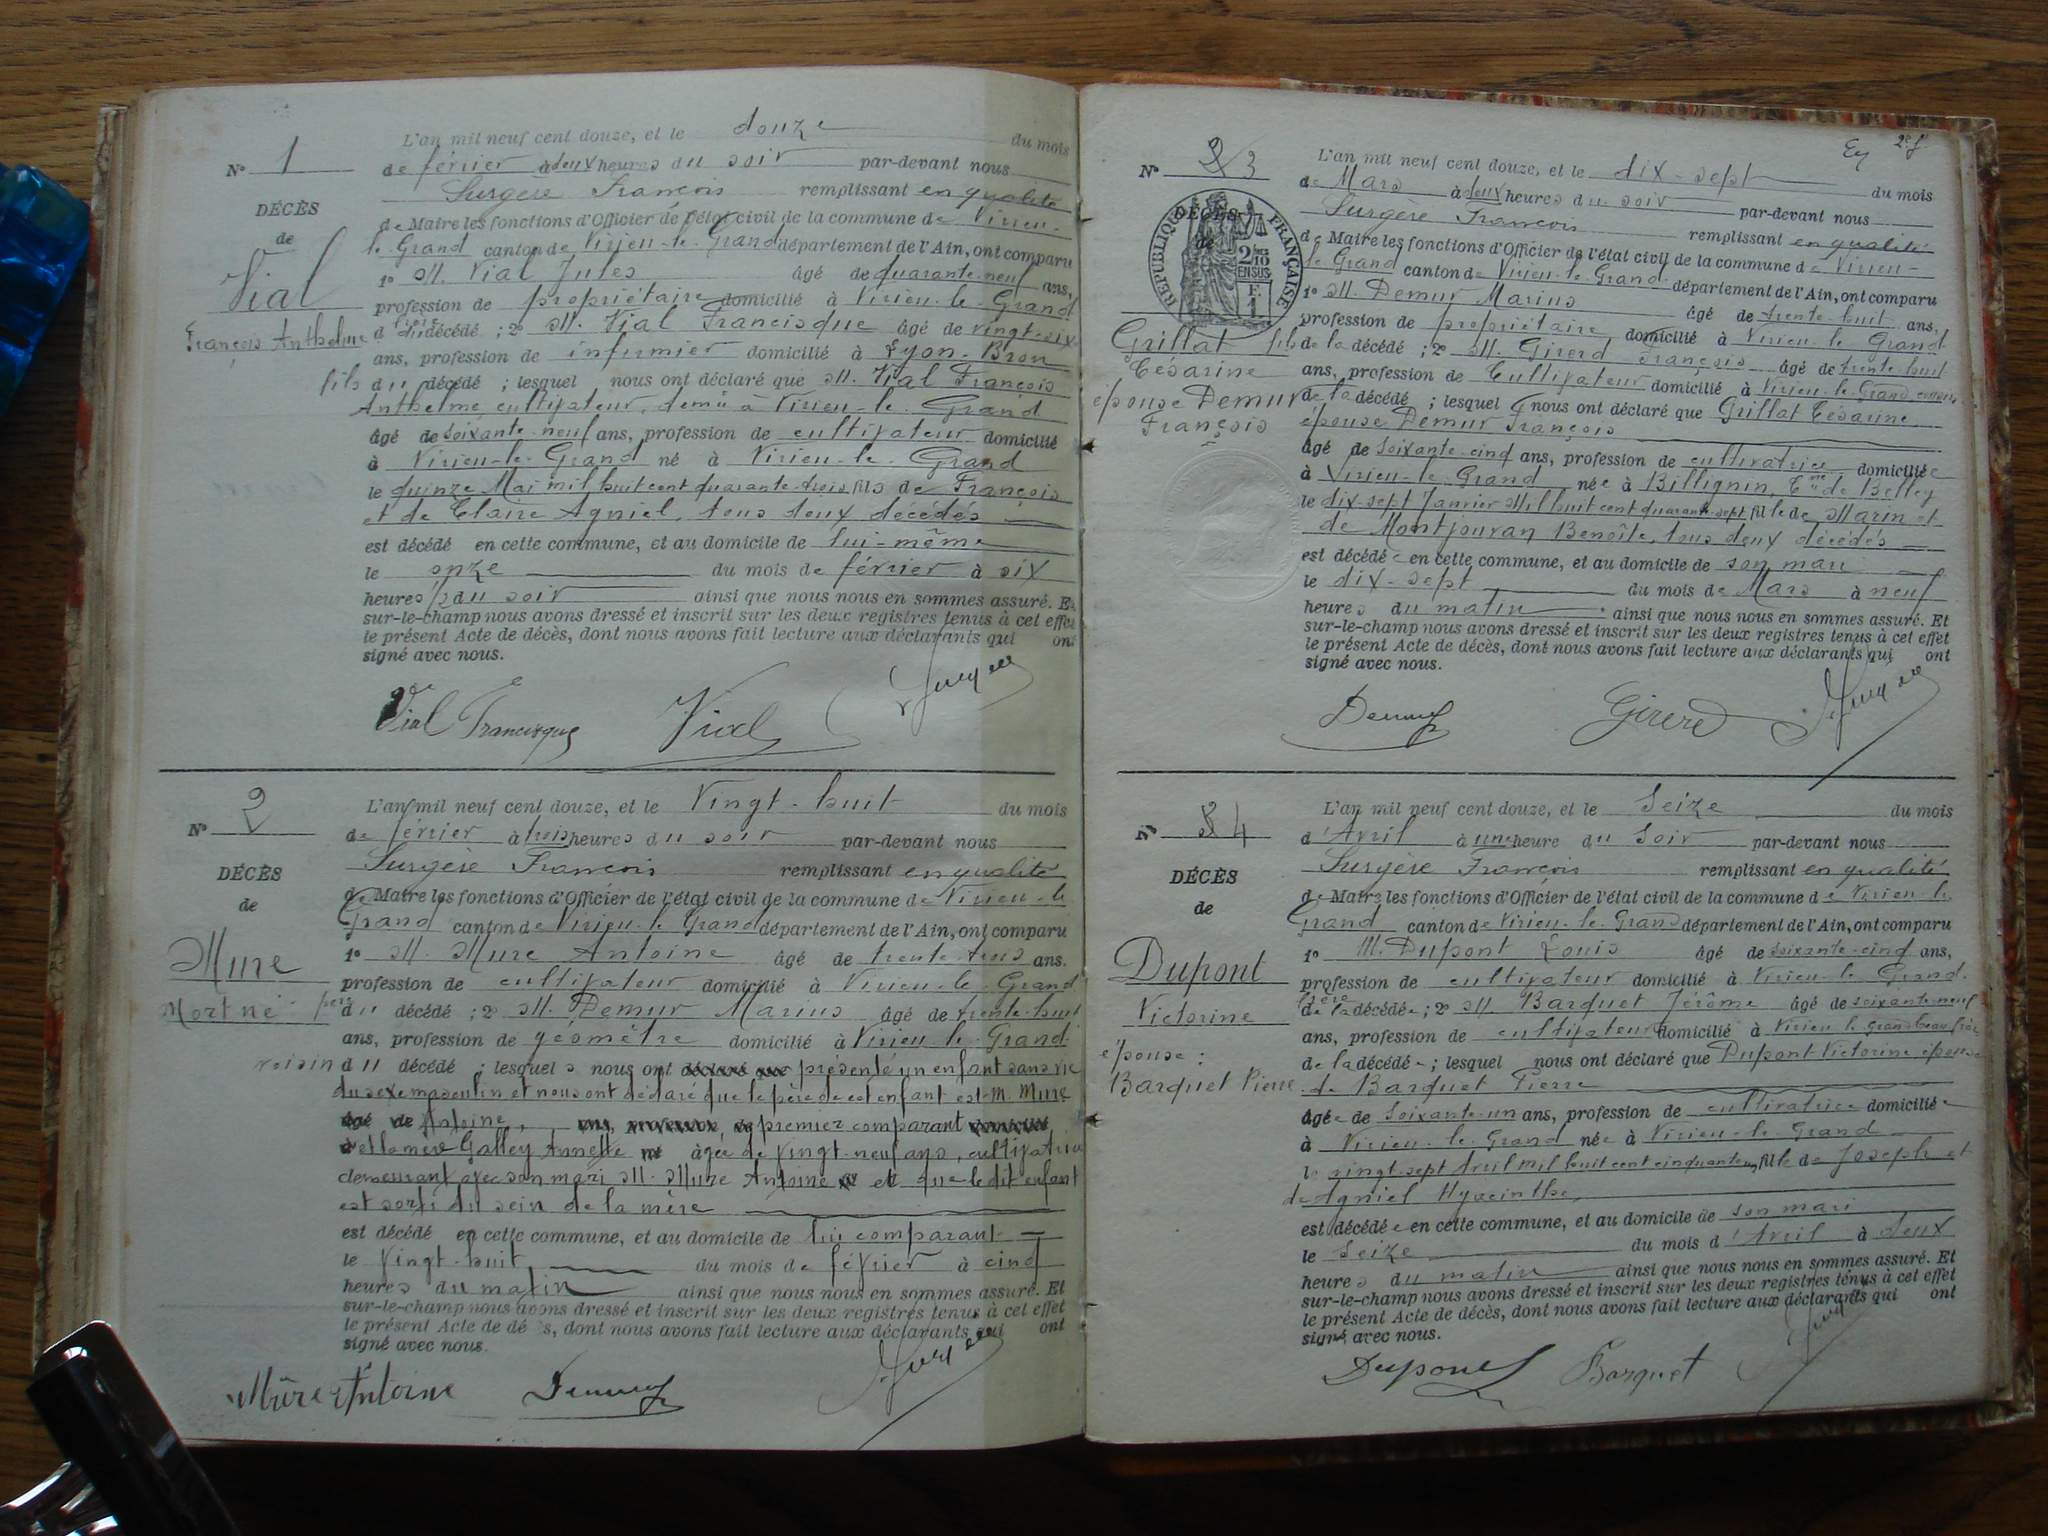 L'an mil neuf cent douze, et le douze du mois
N° 1
de février à deux heures du soir par-devant nous
Surgère François remplissant en qualité
DÉCÈS
de Maire les fonctions d'Officier de l'état civil de la commune de Virieu-
de
le Grand canton de Virieu-le-Grand département de l'Ain, ont comparu
Vial
1° M. Vial Jules âgé de quarante-neuf ans,
profession de propriétaire domicilié à Virieu-le-Grand
François Anthelme
du décédé ; 2° M. Vial Francisque âgé de vingt-six
ans, profession de infirmier domicilié à Lyon-Bron
fils du décédé ; lesquel nous ont déclaré que M. Vial François
Anthelme, cultivateur, demt à Virieu-le-Grand
âgé de soixante-neuf ans, profession de cultivateur domicilié
à Virieu-le-Grand né à Virieu-le-Grand
le quinze Mai mil huit cent quarante-trois fils de François
et de Claire Agniel, tous deux décédés
est décédé en cette commune, et au domicile de lui-même
le onze du mois de février à six
heures 1/2 du soir ainsi que nous nous en sommes assuré. Et
sur-le-champ nous avons dressé et inscrit sur les deux registres tenus à cet effet
le présent Acte de décès, dont nous avons fait lecture aux déclarants qui ont
signé avec nous.
Vial Francisque Vial
L'an mil neuf cent douze, et le vingt-huit du mois
N° 2
de février à trois heures du soir par-devant nous
Surgère François remplissant en qualité
DÉCÈS
de Maire les fonctions d'Officier de l'état civil de la commune de Virieu-le
de
Grand canton de Virieu-le-Grand département de l'Ain, ont comparu
Mure
1° M. Mure Antoine âgé de trente-trois ans.
profession de cultivateur domicilié à Virieu-le-Grand
Mort né
père du décédé ; 2° M. Demur Marius âgé de trente-huit
ans, profession de géomètre domicilié à Virieu-le-Grand
voisin du décédé ; lesquels nous ont déclaré que présenté un enfant sans vie
du sexe masculin et nous ont déclaré que le père de cet enfant est M. Mure
âgé de Antoine, ans, profession de premier comparant domicilié
à et la mère Galley Annette né âgée de vingt-neuf ans, cultivatrice
demeurant avec son mari M. Mure Antoine et que le dit enfant
est sorti du sein de la mère
est décédé en cette commune, et au domicile de lui comparant
le vingt-huit du mois de février à cinq
heures du matin ainsi que nous nous en sommes assuré. Et
sur-le-champ nous avons dressé et inscrit sur les deux registres tenus à cet effet
le présent Acte de décès, dont nous avons fait lecture aux déclarants qui ont
signé avec nous.
Mûre Antoine Demur
2e f.
L'an mil neuf cent douze, et le dix-sept du mois
N° 3
de Mars à deux heures du soir par-devant nous
Surgère François remplissant en qualité
DÉCÈS
de
RÉPUBLIQUE FRANÇAISE
2/10 EN SUS
de Maire les fonctions d'Officier de l'état civil de la commune de Virieu-
le Grand canton de Virieu-le-Grand département de l'Ain, ont comparu
1° M. Demur Marius âgé de trente-huit ans,
profession de propriétaire domicilié à Virieu-le-Grand
Grillat
fils de la décédé ; 2° M. Girerd François âgé de trente-huit
Césarine
ans, profession de Cultivateur domicilié à Virieu-le-Grand
épouse Demur
de la décédé ; lesquel nous ont déclaré que Grillat Césarine
François
épouse Demur François
âgé de soixante-cinq ans, profession de cultivatrice domiciliée
à Virieu-le-Grand née à Billignin, Cne de Belley
le dix-sept Janvier Mil huit cent quarante-sept fille de Marin et
de Montjouvan Benoîte, tous deux décédés
est décédée en cette commune, et au domicile de son mari
le dix-sept du mois de Mars à neuf
heures du matin ainsi que nous nous en sommes assuré. Et
sur-le-champ nous avons dressé et inscrit sur les deux registres tenus à cet effet
le présent Acte de décès, dont nous avons fait lecture aux déclarants qui ont
signé avec nous.
Demur Girerd
L'an mil neuf cent douze, et le Seize du mois
N° 4
d'Avril à une heure du Soir par-devant nous
Surgère François remplissant en qualité
DÉCÈS
de Maire les fonctions d'Officier de l'état civil de la commune de Virieu-le
de
Grand canton de Virieu-le-Grand département de l'Ain, ont comparu
Dupont
1° M. Dupont Louis âgé de soixante-cinq ans,
profession de cultivateur domicilié à Virieu-le-Grand.
Victorine
frère de la décédée ; 2° M. Barquet Jérôme âgé de soixante-neuf
ans, profession de cultivateur domicilié à Virieu-le-Grand beau frère
épouse :
de la décédée ; lesquel nous ont déclaré que Dupont Victorine épouse
Barquet Pierre
de Barquet Pierre
âgée de soixante-un ans, profession de cultivatrice domiciliée
à Virieu-le-Grand née à Virieu-le-Grand
le vingt-sept Avril mil huit cent cinquante un fille de Joseph et
de Agniel Hyacinthe,
est décédée en cette commune, et au domicile de son mari
le Seize du mois d'Avril à deux
heures du matin ainsi que nous nous en sommes assuré. Et
sur-le-champ nous avons dressé et inscrit sur les deux registres tenus à cet effet
le présent Acte de décès, dont nous avons fait lecture aux déclarants qui ont
signé avec nous.
Dupont Barquet